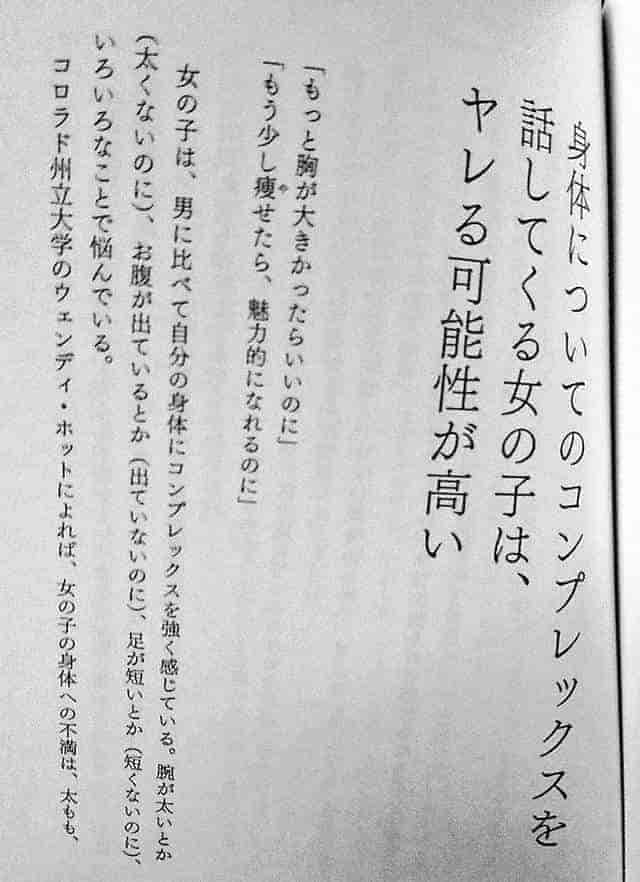 身体についてのコンプレックスを
話してくる女の子は、
ヤレる可能性が高い
「もっと胸が大きかったらいいのに」
「もう少し痩せたら、魅力的になれるのに」
や
女の子は、男に比べて自分の身体にコンプレックスを強く感じている。腕が太いとか
(太くないのに)、お腹が出ているとか(出ていないのに)、足が短いとか(短くないのに)、
いろいろなことで悩んでいる。
コロラド州立大学のウェンディ・ホットによれば、女の子の身体への不満は、太もも、